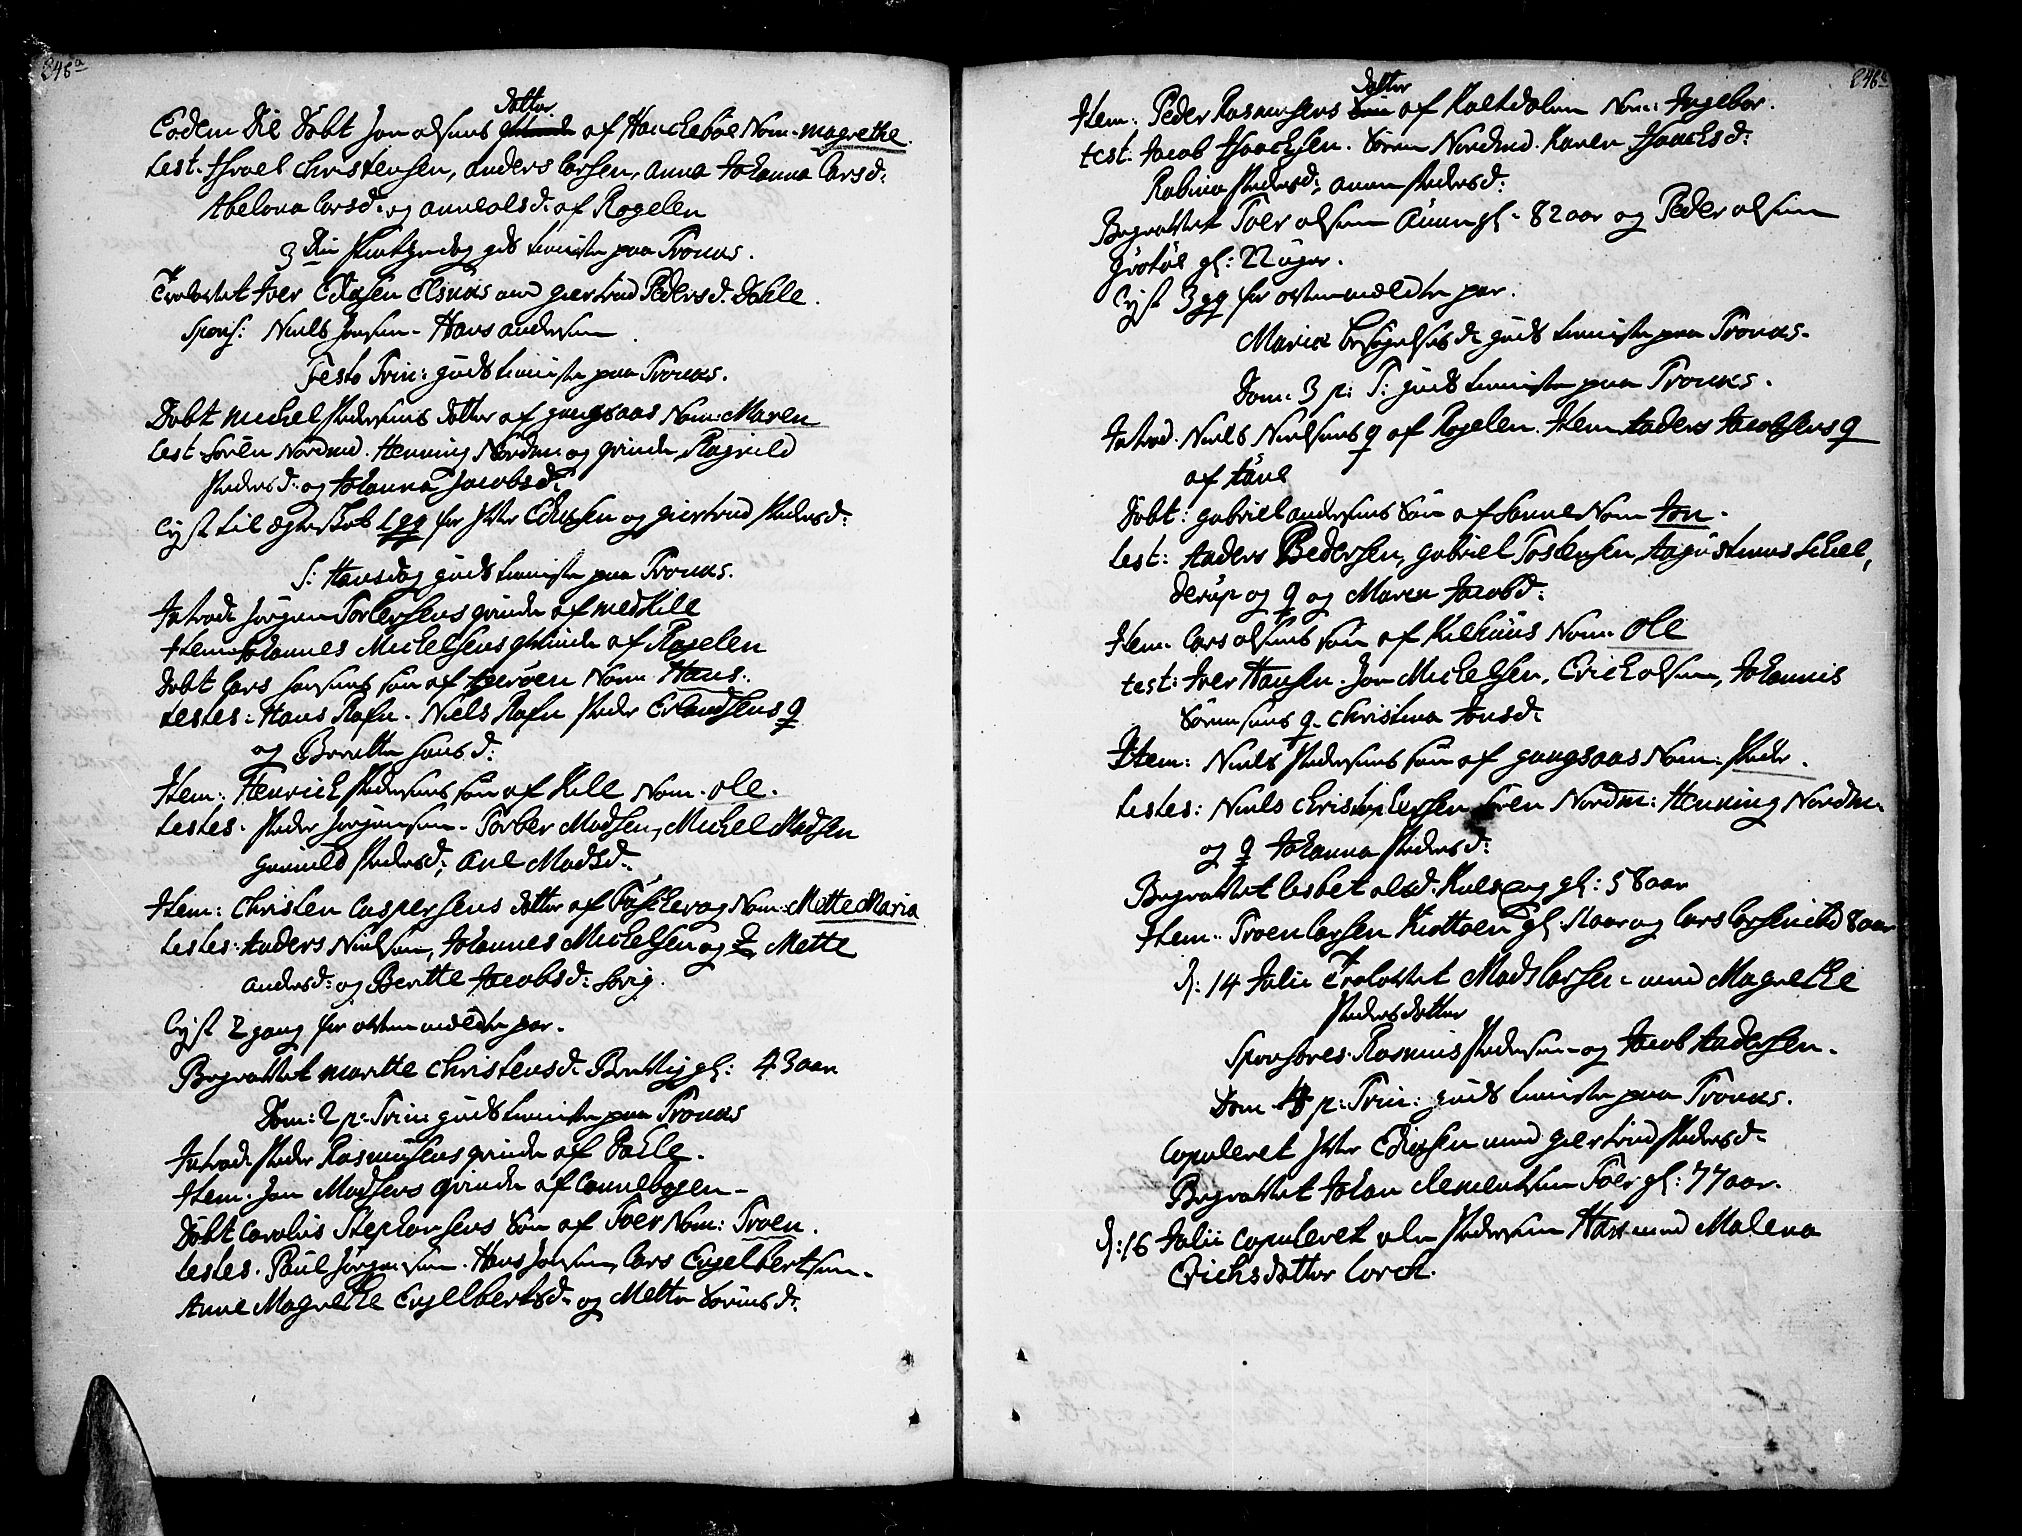 248a
Eodem Die Døbt Jon olsens datter af Hanchebøe Nom. magrethe.
test. Jsrael Christensen, anders Larsen, anna Johanna Larsd:
Abelona Larsd: og anne olsd: af Rogelen
3die Pintzedag guds tieniste paa Tronæs.
Trolovet Iver Ellingsen med giertrud Pedersd. Dahle.
Spons: Niels Jonsen - Hans andersen
Festo Trin: guds tieniste paa Tronæs.
Døbt michel Pedersens datter af gangsaas Nom: Maren
test Søren Nordmd. Henning Nordm: og qvinde, Ragnild
Pedersd: og Johanna Jacobsd:
Lyst til ægteskab 1 gg for Iver og giertrud Pedersd:
S: Hansdag guds tieniste paa Tronæs.
Introd: Jørgen Torbersens qvinde af medkile
Item Johannes Michelsens qvinde af Rogelen
Døbt Lars Jonsens søn af Nom: Hans.
testes: Hans Rafn. Niels Rafn Peder Erlandsens q
og Beritte Hansd:
Item: Henrich Pedersens søn af Kile Nom. ole.
testes. Peder Jørgensen - Torber Madsen, Michel Madsen
gunnild Pedersd: ane Madsd:
Item: Christen Caspersens datter af Fuschevog Nom: Mette Maria
testes: Anders Nielsen, Johannes Michelsen og q, Mette
andersd: og Beritte Jacobsd: Sørig.
Lyst 2 gang for ovenmeldte par.
Begravet maritte Christensd: gl: 43 aar
Dom: 2 p. Trin: guds tieniste paa Tronæs
Introd: Peder Rasmusens qvinde af Dahle.
Item. Jon Madsens qvinde af Lannebogen -
Døbt Carolus Stephansens søn af Foer Nom: Troen.
testes. Paul Jørgensen. Hans Jonsen, Lars Engelbertsen.
Anne Magrethe Engelbertsd: og Mette Sørensd:
248b
Item: Peder Rasmusens datter af Kaltdalen Nom: Ingebor.
test: Jacob Isaachsen. Søren Nordmd. Karen Isaachsd:
Rabina Pedersd: anne Pedersd:
Begravet Foer gl. 82 aar og Peder olsen
gl: 22 uger.
Lyst 3 gg for ovenmeldte par.
Mariæ besøgelses d: guds tieniste paa Tronæs.
Dom: 3 p: T: guds tieniste paa Tronæs.
Introd. Niels Nielsens q af Rogelen. Item Anders Jacobsens q
af
Døbt: gabriel andersens søn af Sanne Nom Jon.
test: Anders Pedersen, gabriel Tostensen, Augustinus Schiel,
derup og q og Maren Jacobd:
Item. Lars olsens søn af Kilhuus Nom. ole
test: Iver Hansen. Jon Michelsen. Erich olsen, Johannis
Sørensens q. Christina Jonsd:
Item: Niels Pedersens søn af gangsaas Nom: Peder.
testes: Niels Christophersen Søren Nordm: Henning Nordm.
og q Johanna Pedersd:
Begravet lisbet olsd. gl: 58 aar
Item: Troen Larsen gl. aar og Lars Larsen 8 aar
d: 14 Julii Trolovet Mads Larsen - med Magrethe
Pedersdatter
Sponsores. Rasmus Pedersen og Jacob Andersen.
Dom 4 p: Trin: guds tieniste paa Tronæs.
Copuleret Iver med giertrud Pedersd:
Begravet Johan Clementsen Foer gl: 77 aar.
d: 16 Julii copuleret ole Pedersen med Malena
Erichsdatter Lorch.